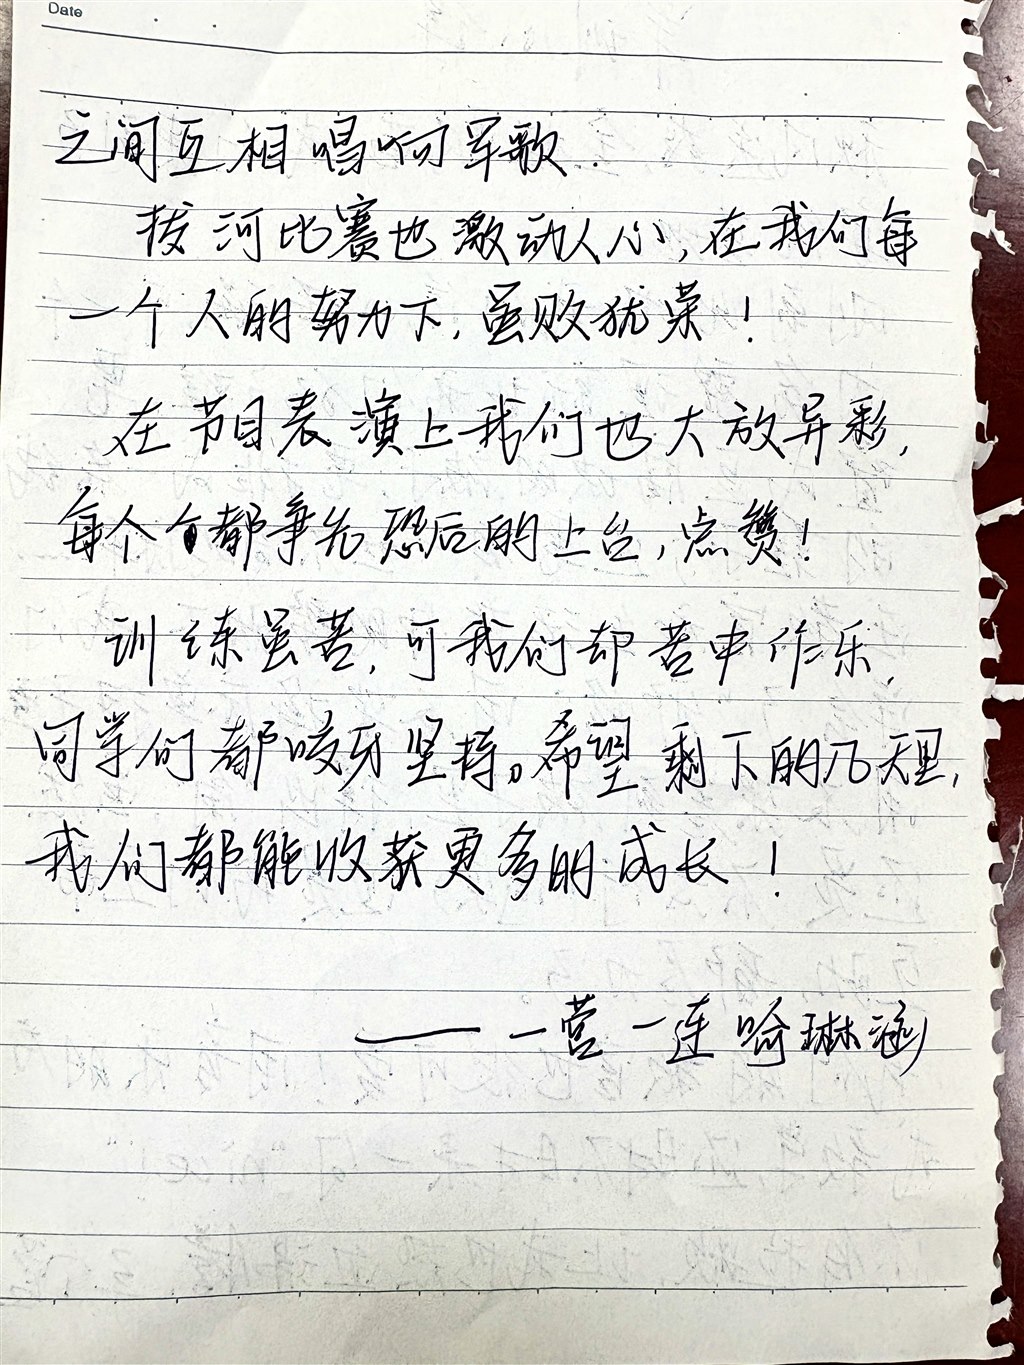 Date
之间互相唱响军歌.
拔河比赛也激动人心,在我们每
一个人的努力下,虽败犹荣!
在节目表演上我们也大放异彩,
每个都争先恐后的上台,点赞!
训练虽苦,可我们却苦中作乐,
同学们都咬牙坚持。希望剩下的几天里,
我们都能收获更多的成长!
——一营一连喻琳涵